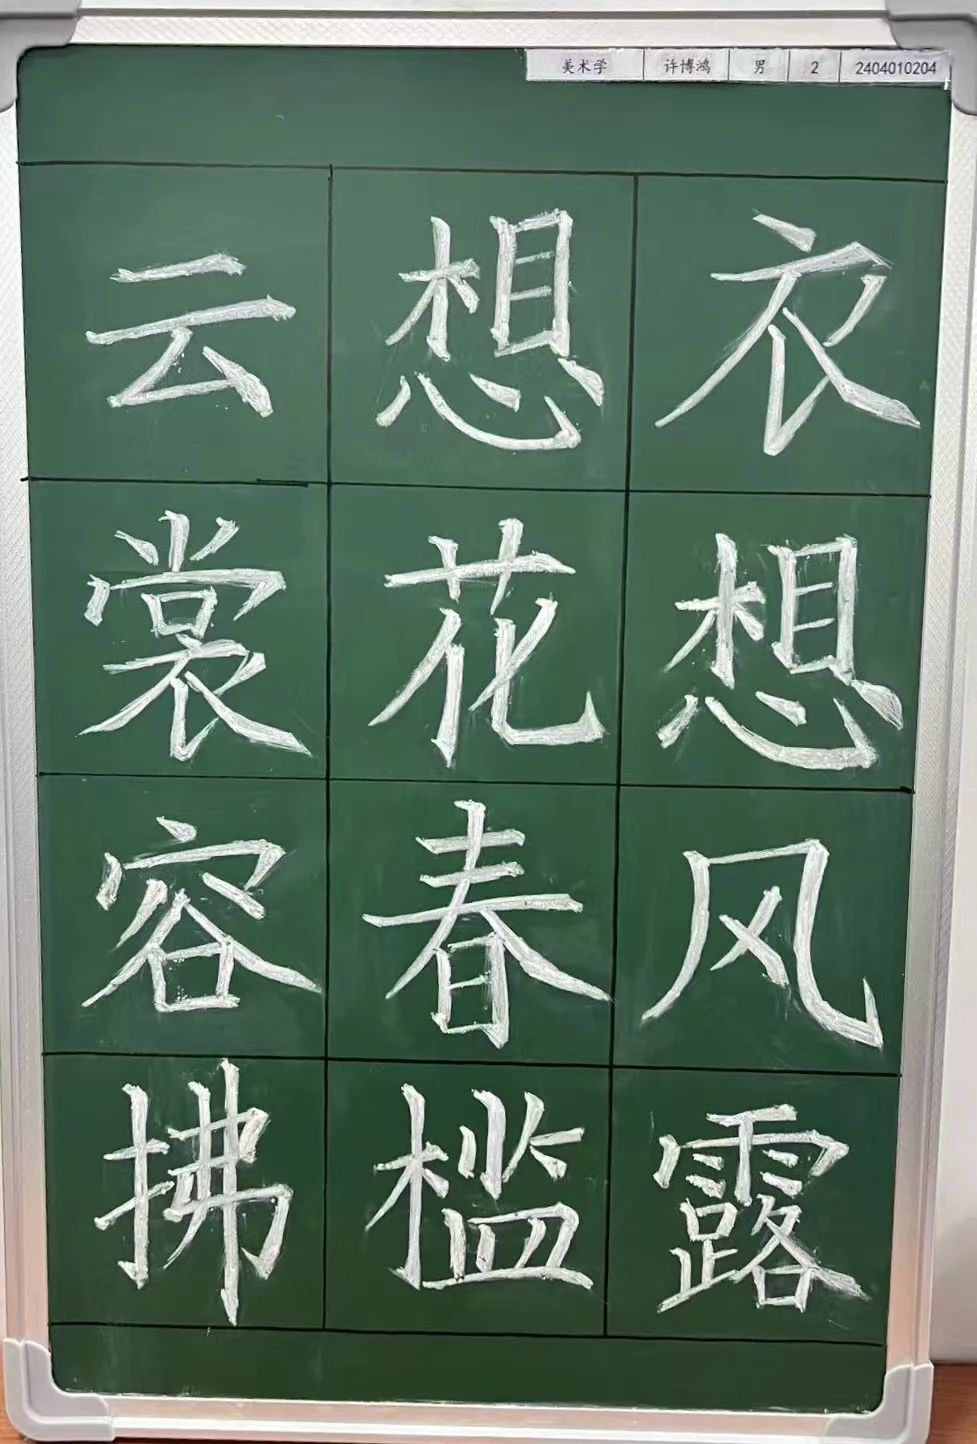 美术学 许博鸿 男 2 2404010204
云想衣
裳花想
容春风
拂槛露